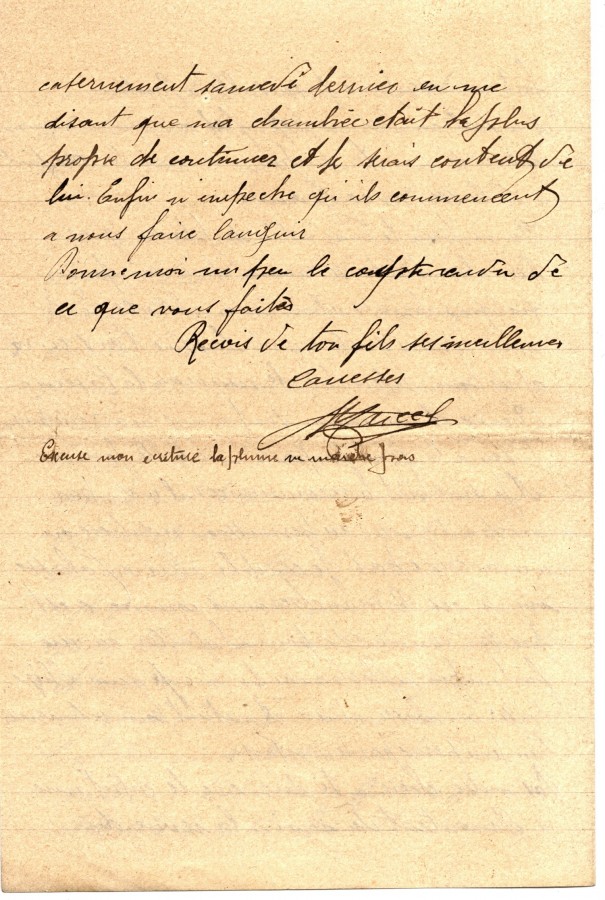 casernement samedi dernier en me
disant que ma chambrée etait la plus
propre de continuer et je serais content de
lui. Enfin n'impeche qu'ils commencent
a nous faire languir
Donne moi un peu le compte rendu de
ce que vous faites
Recois de ton fils ses meilleures
caresses
Marcel
Excuse mon ecriture la plume ne marche pas